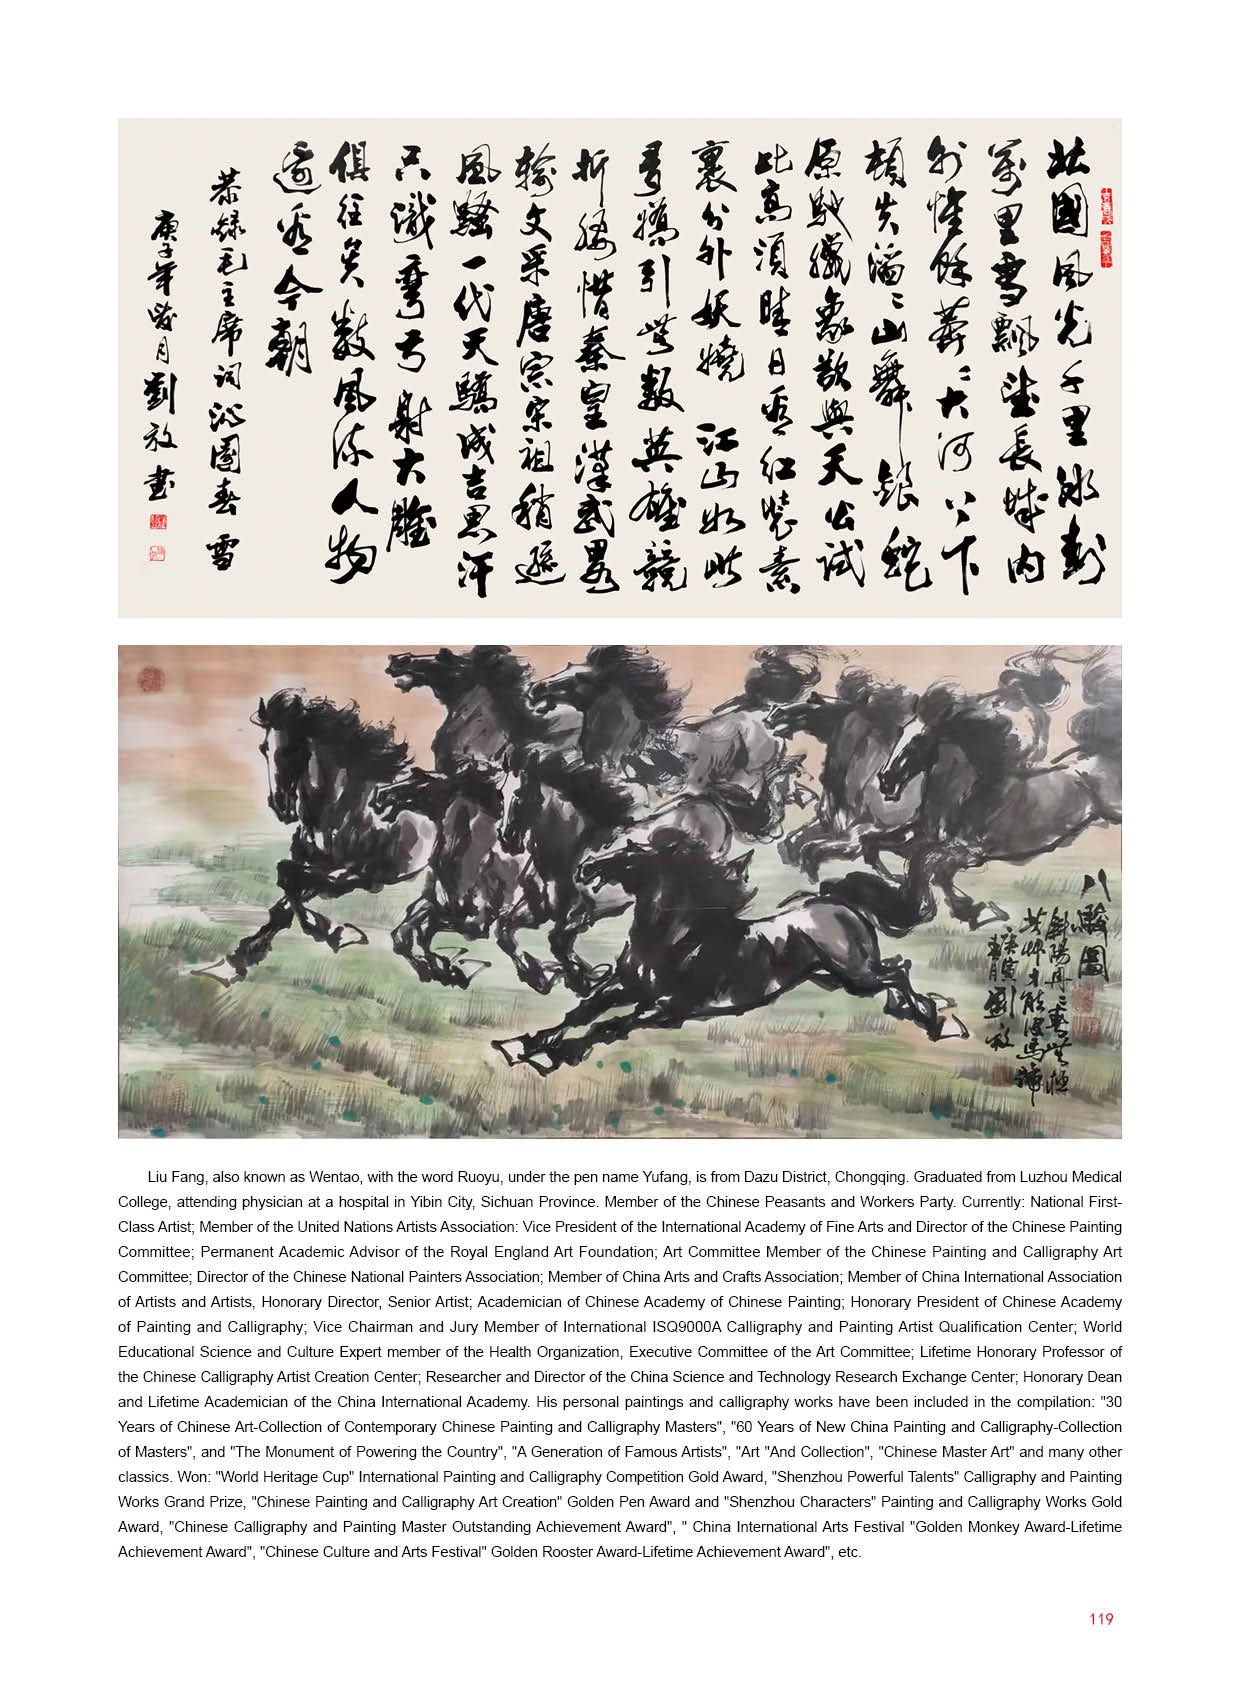 北國風光千里冰封
萬里雪飄望長城内
外惟餘莽〻大河上下
頓失滔〻山舞銀蛇
原馳蠟象欲與天公試
比高須晴日看紅裝素
裹分外妖嬈江山如此
多嬌引無數英雄競
折腰惜秦皇漢武畧
輸文采唐宗宋祖稍遜
風騷一代天驕成吉思汗
只識彎弓射大雕
俱往矣數風流人物
還看今朝
恭録毛主席詞沁園春 雪
庚子年 月劉放書
八駿圖
斜陽 無極
草才能没馬蹄
庚寅
劉放
Liu Fang, also known as Wentao, with the word Ruoyu, under the pen name Yufang, is from Dazu District, Chongqing. Graduated from Luzhou Medical
College, attending physician at a hospital in Yibin City, Sichuan Province. Member of the Chinese Peasants and Workers Party. Currently: National First-
Class Artist; Member of the United Nations Artists Association: Vice President of the International Academy of Fine Arts and Director of the Chinese Painting
Committee; Permanent Academic Advisor of the Royal England Art Foundation; Art Committee Member of the Chinese Painting and Calligraphy Art
Committee; Director of the Chinese National Painters Association; Member of China Arts and Crafts Association; Member of China International Association
of Artists and Artists, Honorary Director, Senior Artist; Academician of Chinese Academy of Chinese Painting; Honorary President of Chinese Academy
of Painting and Calligraphy; Vice Chairman and Jury Member of International ISQ9000A Calligraphy and Painting Artist Qualification Center; World
Educational Science and Culture Expert member of the Health Organization, Executive Committee of the Art Committee; Lifetime Honorary Professor of
the Chinese Calligraphy Artist Creation Center; Researcher and Director of the China Science and Technology Research Exchange Center; Honorary Dean
and Lifetime Academician of the China International Academy. His personal paintings and calligraphy works have been included in the compilation: "30
Years of Chinese Art-Collection of Contemporary Chinese Painting and Calligraphy Masters", "60 Years of New China Painting and Calligraphy-Collection
of Masters", and "The Monument of Powering the Country", "A Generation of Famous Artists", "Art "And Collection", "Chinese Master Art" and many other
classics. Won: "World Heritage Cup" International Painting and Calligraphy Competition Gold Award, "Shenzhou Powerful Talents" Calligraphy and Painting
Works Grand Prize, "Chinese Painting and Calligraphy Art Creation" Golden Pen Award and "Shenzhou Characters" Painting and Calligraphy Works Gold
Award, "Chinese Calligraphy and Painting Master Outstanding Achievement Award", " China International Arts Festival "Golden Monkey Award-Lifetime
Achievement Award", "Chinese Culture and Arts Festival" Golden Rooster Award-Lifetime Achievement Award", etc.
119